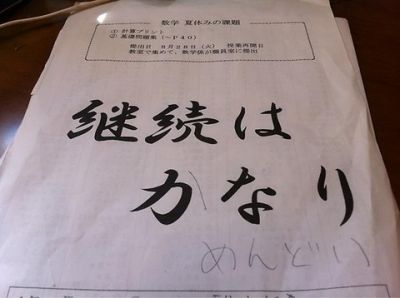 数学 夏休みの課題
① 計算プリント
② 基礎問題集(~P40)
提出日 8月28日(火) 授業再開日
教室で集めて、数学係が職員室に提出
継続は
かなり
めんどい